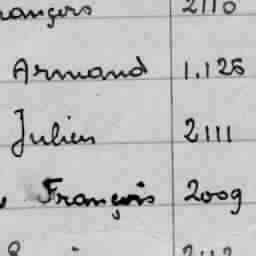 2110
Armand 1.125
Julien 2111
François 2009